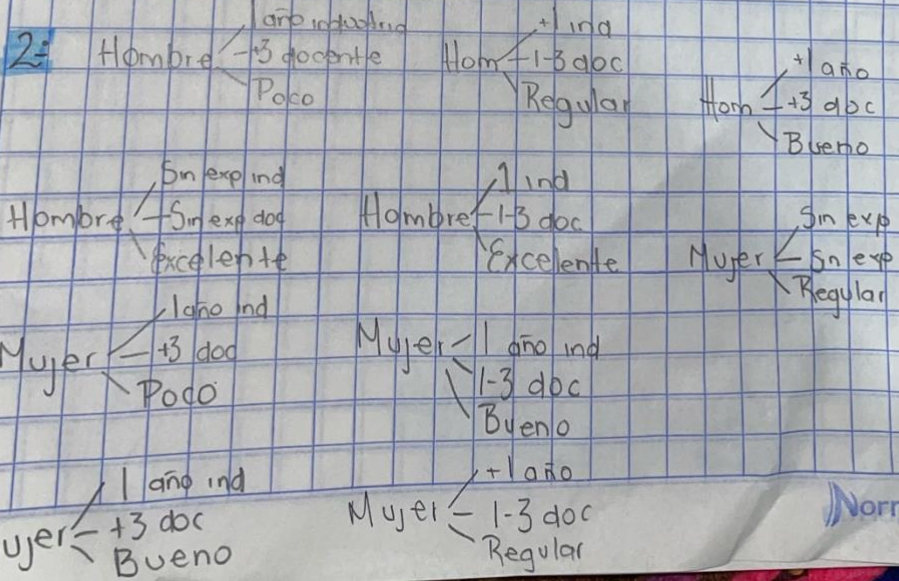 2=
Hombre
1 año industrind
+3 docente
Poco
Hom
+1 ind
1-3 doc
Regular
Hom
+1 año
+3 doc
Bueno
Hombre
Sin exp ind
Sin exp doc
Excelente
Hombre
1 ind
1-3 doc
Excelente
Mujer
Sin exp
Sin exp
Regular
Mujer
1 año ind
+3 doc
Poco
Mujer
1 año ind
1-3 doc
Bueno
ujer
1 año ind
+3 doc
Bueno
Mujer
+1 año
1-3 doc
Regular
Norr